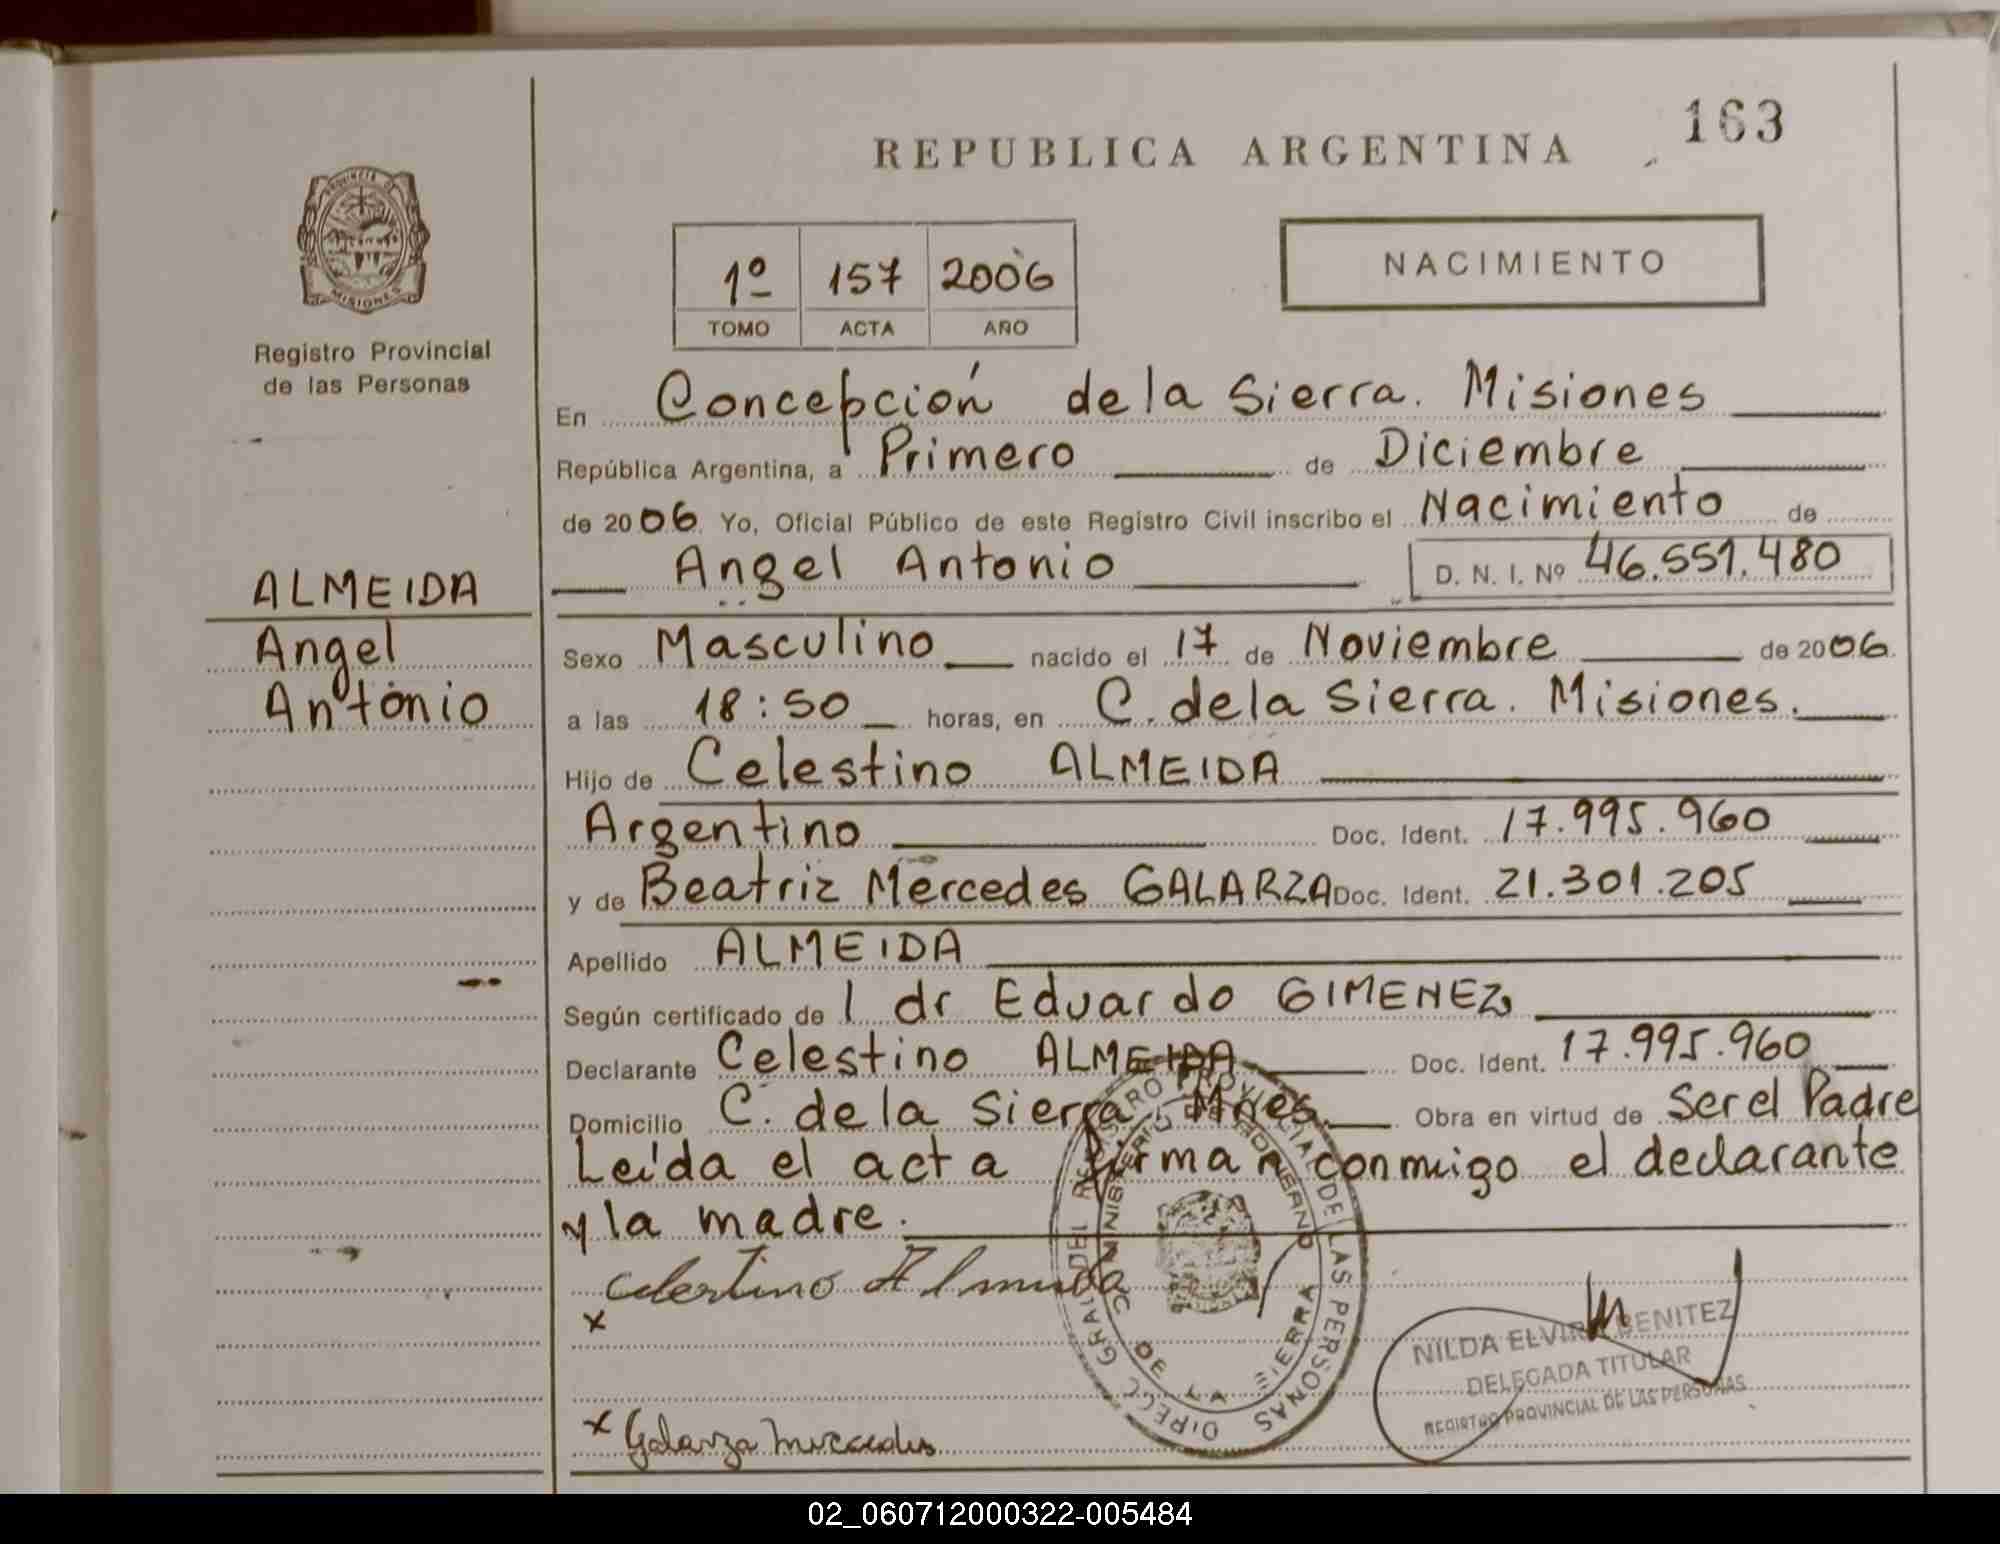 163
REPUBLICA ARGENTINA
PROVINCIA DE
MISIONES
Registro Provincial
de las Personas
1º 157 2006
TOMO ACTA AÑO
NACIMIENTO
En Concepción de la Sierra. Misiones
República Argentina, a Primero de Diciembre
de 2006. Yo, Oficial Público de este Registro Civil inscribo el Nacimiento de
Angel Antonio D. N. I. Nº 46.551.480
ALMEIDA
Angel
Antonio
Sexo Masculino nacido el 17 de Noviembre de 2006.
a las 18:50 horas, en C. de la Sierra. Misiones.
Hijo de Celestino ALMEIDA
Argentino Doc. Ident. 17.995.960
y de Beatriz Mercedes GALARZA Doc. Ident. 21.301.205
Apellido ALMEIDA
Según certificado de l dr Eduardo GIMENEZ
Declarante Celestino ALMEIDA Doc. Ident. 17.995.960
Domicilio C. de la Sierra, Mnes. Obra en virtud de Ser el Padre
Leída el acta firman conmigo el declarante
y la madre.
Celestino Almeida
x
x Galarza Mercedes
DIRECC. GRAL. DEL REGISTRO PROVINCIAL DE LAS PERSONAS
MINISTERIO DE GOBIERNO
C. DE LA SIERRA
NILDA ELVIRA BENITEZ
DELEGADA TITULAR
REGISTRO PROVINCIAL DE LAS PERSONAS
02_060712000322-005484